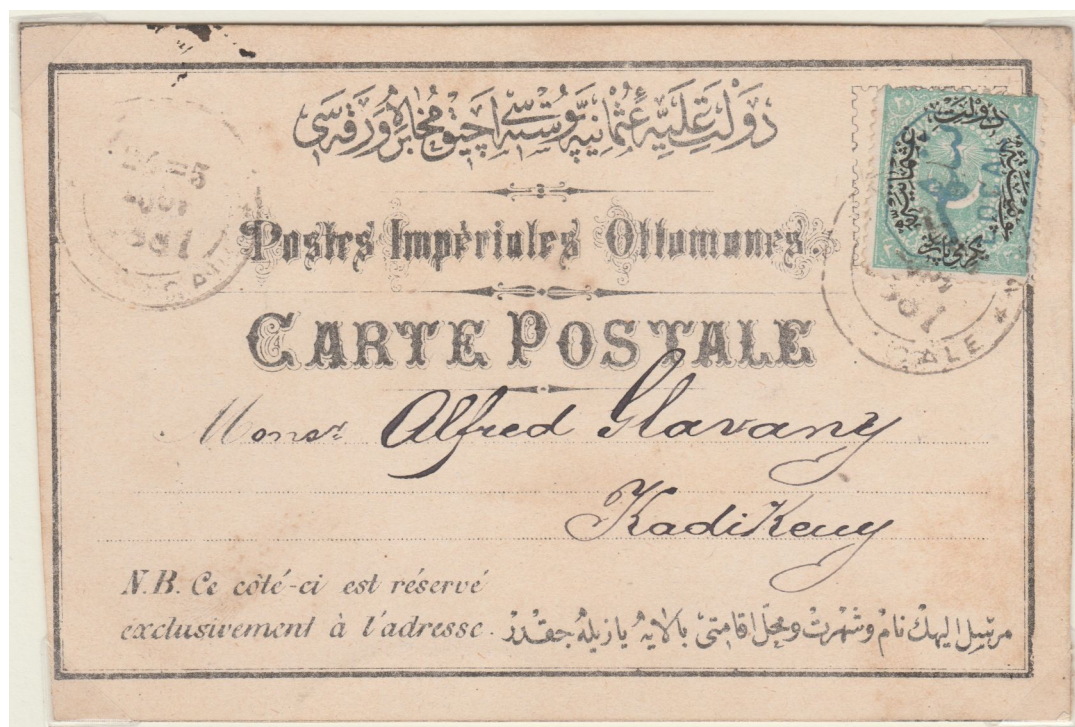 دولت علیه عثمانیه پوسته سی آچیق مخابره ورقه سی
Postes Impériales Ottomanes
CARTE POSTALE
Monsr Alfred Glavany
Kadikeuy
N.B. Ce côté-ci est réservé
exclusivement à l'adresse.
مرسل الیهك نام وشهرت ومحل اقامتی بالایه یازیله جقدر
٢٠ ٢٠
دولت
881
CALE
881